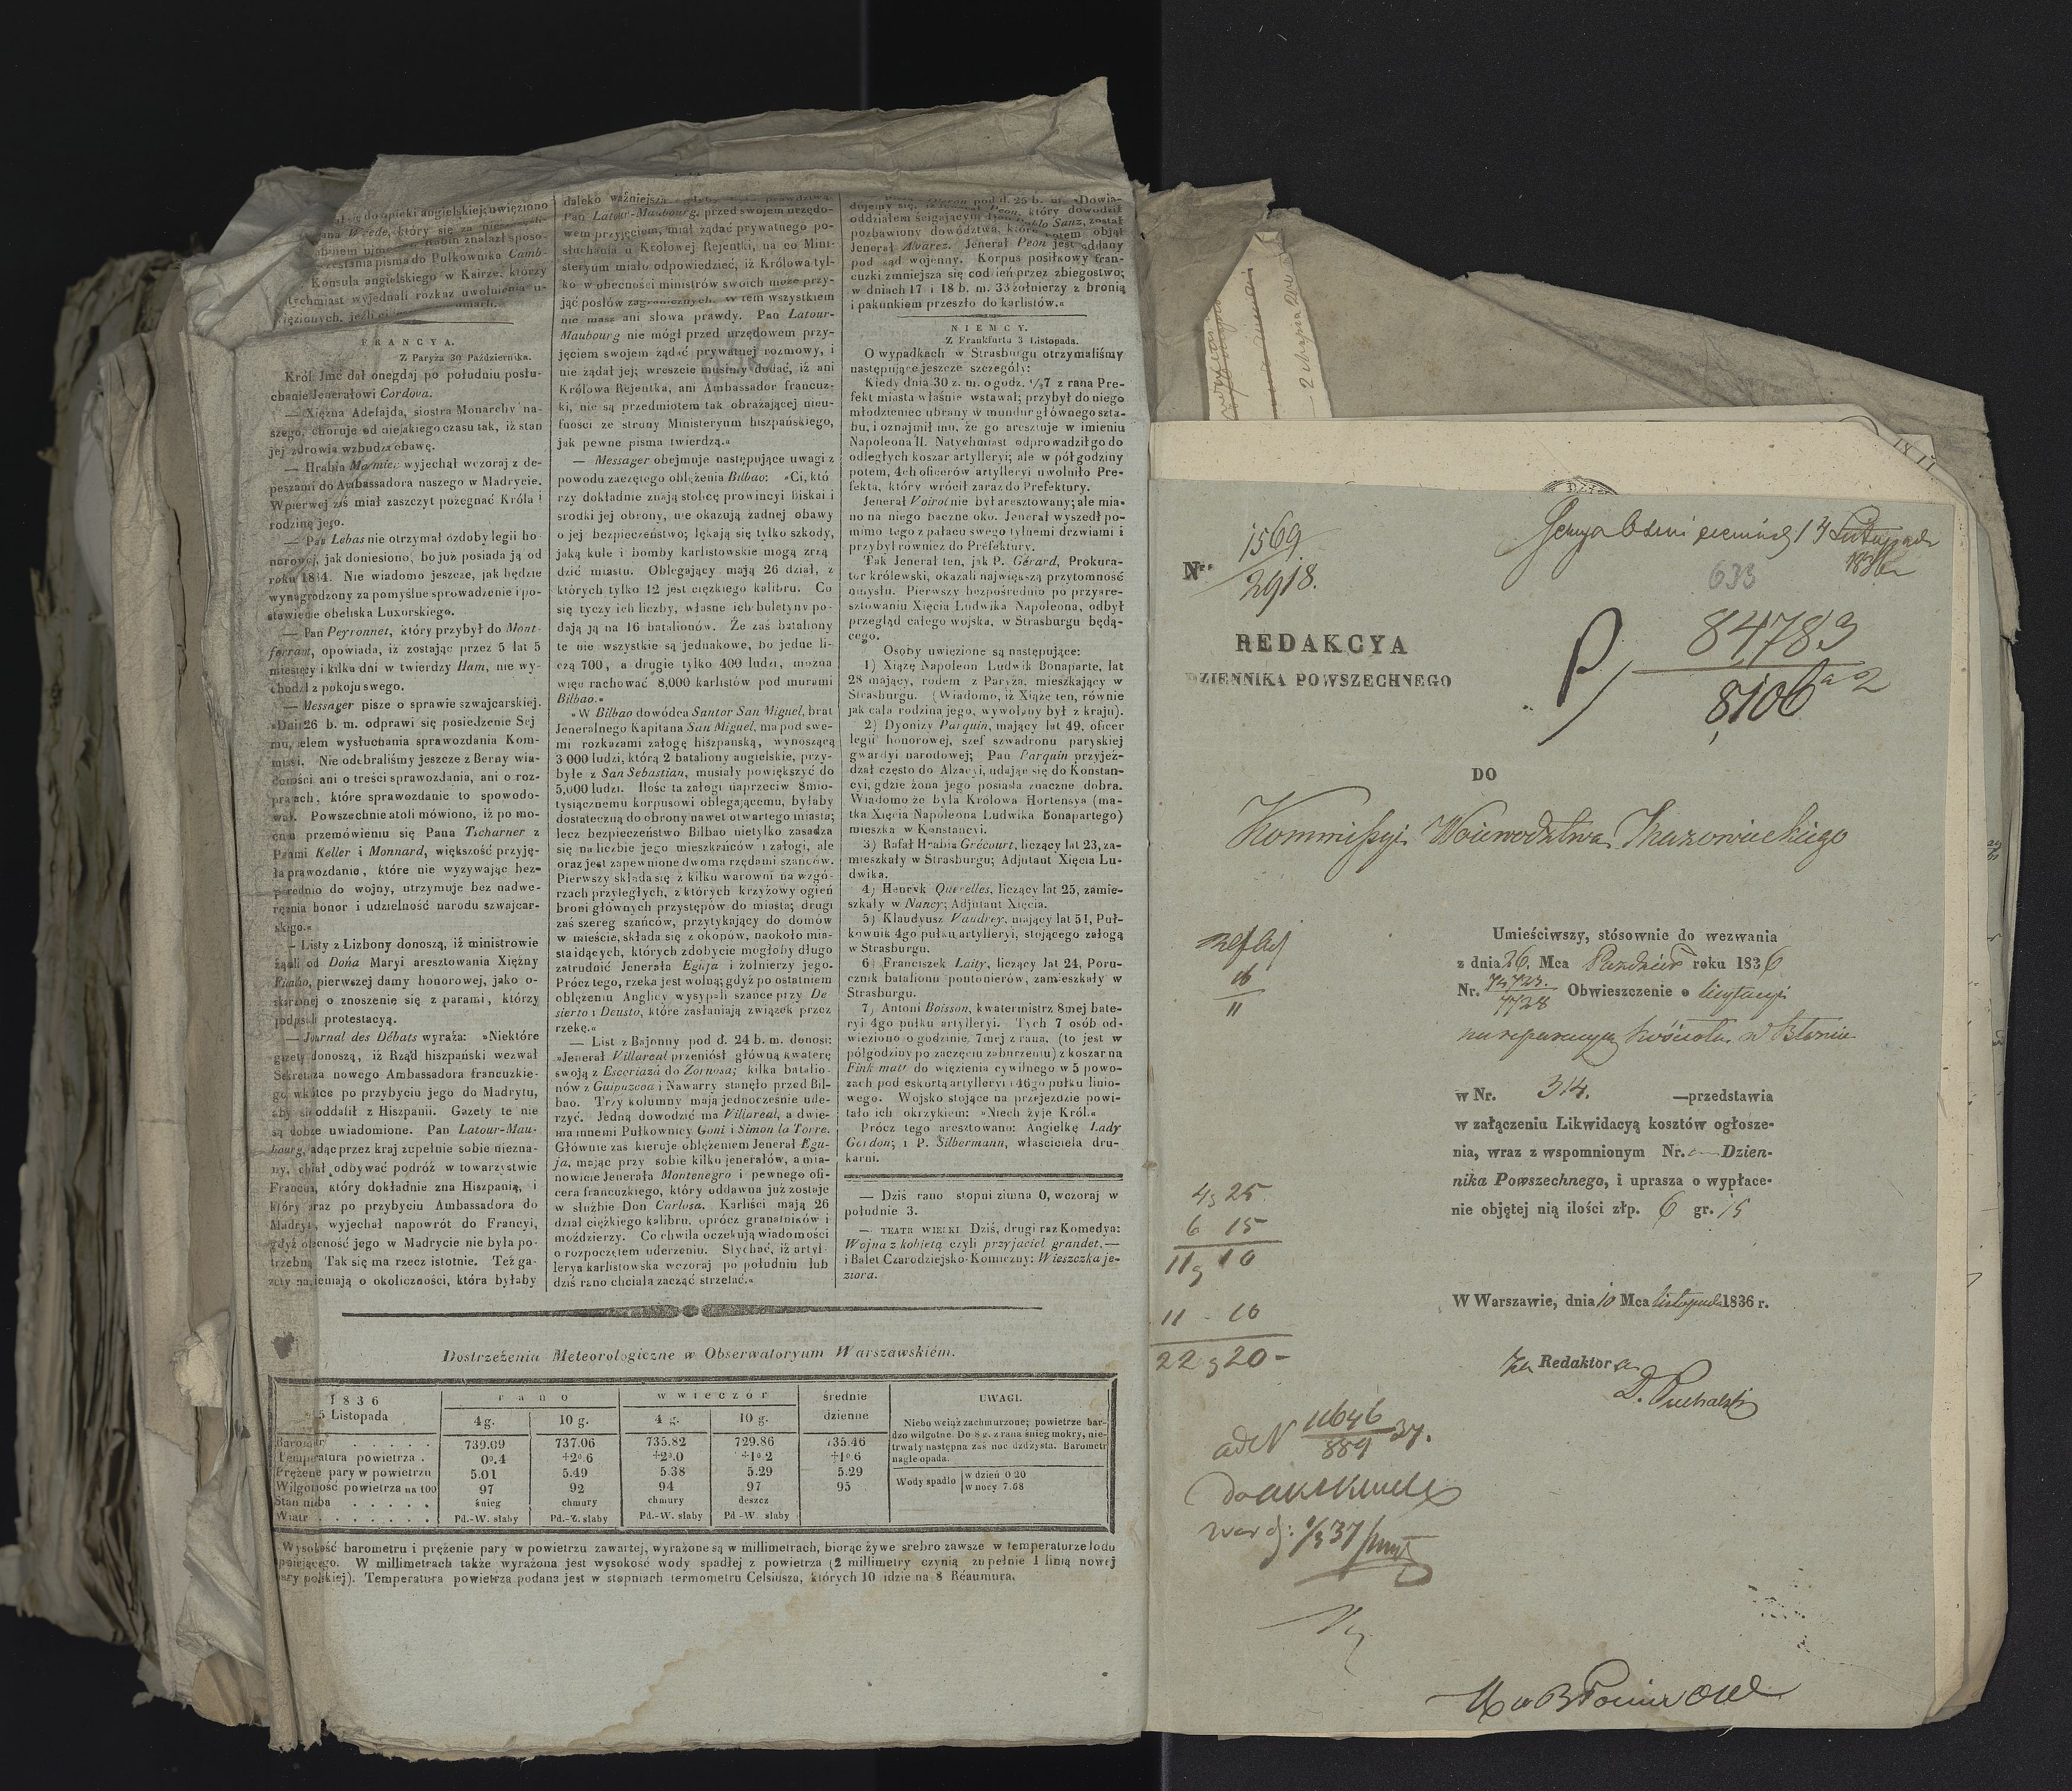 daleko ważniejsza
Pan Latour-Maubourg, przed swojem urzędo-
wem przyjęciem, miał żądać prywatnego po-
słuchania u Królowej Rejentki, na co Mini-
steryum miało odpowiedzieć, iż Królowa tyl-
ko w obecności ministrów swoich może przy-
jąć posłów zagranicznych. W tem wszystkiem
nie masz ani słowa prawdy. Pan Latour-
Maubourg nie mógł przed urzędowem przy-
jęciem swojem żądać prywatnej rozmowy, i
nie żądał jej; wreszcie musimy dodać, iż ani
Królowa Rejentka, ani Ambassador francuz-
ki, nie są przedmiotem tak obrażającej nieu-
fności ze strony Ministeryum hiszpańskiego,
jak pewne pisma twierdzą.«
FRANCYA.
Z Paryża 30 Października.
Król Jmć dał onegdaj po południu posłu-
chanie Jenerałowi Cordova.
— Xiężna Adelajda, siostra Monarchy na-
szego, choruje od niejakiego czasu tak, iż stan
jej zdrowia wzbudza obawę.
— Hrabia Mormier wyjechał wczoraj z de-
peszami do Ambassadora naszego w Madrycie.
Wpierwej zaś miał zaszczyt pożegnać Króla i
rodzinę jego.
— Pan Lebas nie otrzymał ozdoby legii ho-
norowej, jak doniesiono, bo już posiada ją od
roku 1814. Nie wiadomo jeszcze, jak będzie
wynagrodzony za pomyślne sprowadzenie i po-
stawienie obeliska Luxorskiego.
— Pan Peyronnet, który przybył do Mont-
ferrant, opowiada, iż zostając przez 5 lat 5
miesięcy i kilka dni w twierdzy Ham, nie wy-
chodził z pokoju swego.
— Messager pisze o sprawie szwajcarskiej.
»Dnia 26 b. m. odprawi się posiedzenie Sej
mu, celem wysłuchania sprawozdania Kom-
missyi. Nie odebraliśmy jeszcze z Berny wia-
domości ani o treści sprawozdania, ani o roz-
prawach, które sprawozdanie to spowodo-
wało. Powszechnie atoli mówiono, iż po mo-
cnem przemówieniu się Pana Tscharner z
Panami Keller i Monnard, większość przyję-
ła prawozdanie, które nie wyzywając bez-
pośrednio do wojny, utrzymuje bez nadwe-
rężenia honor i udzielność narodu szwajcar-
skiego.«
— Listy z Lizbony donoszą, iż ministrowie
żądali od Doña Maryi aresztowania Xiężny
Ficalho, pierwszej damy honorowej, jako o-
skarżonej o znoszenie się z parami, którzy
podpisali protestacyą.
— Journal des Débats wyraża: »Niektóre
gazety donoszą, iż Rząd hiszpański wezwał
Sekretarza nowego Ambassadora francuzkie-
go, wkrótce po przybyciu jego do Madrytu,
aby się oddalił z Hiszpanii. Gazety te nie
są dobrze uwiadomione. Pan Latour-Mau-
bourg, jadąc przez kraj zupełnie sobie niezna-
ny, chciał odbywać podróż w towarzystwie
Francuza, który dokładnie zna Hiszpanią, i
który zaraz po przybyciu Ambassadora do
Madrytu, wyjechał napowrót do Francyi,
gdyż obecność jego w Madrycie nie była po-
trzebną. Tak się ma rzecz istotnie. Też ga-
zety namieniają o okoliczności, która byłaby
— Messager obejmuje następujące uwagi z
powodu zaczętego oblężenia Bilbao: »Ci, któ
rzy dokładnie znają stolicę prowincyi Biskai i
środki jej obrony, nie okazują żadnej obawy
o jej bezpieczeństwo; lękają się tylko szkody,
jaką kule i bomby karlistowskie mogą zrzą
dzić miastu. Oblegający mają 26 dział, z
których tylko 12 jest ciężkiego kalibru. Co
się tyczy ich liczby, własne ich buletyny po-
dają ją na 16 batalionów. Że zaś bataliony
te nie wszystkie są jednakowe, bo jedne li-
czą 700, a drugie tylko 400 ludzi, można
więc rachować 8,000 karlistów pod murami
Bilbao.«
»W Bilbao dowódca Santor San Miguel, brat
Jeneralnego Kapitana San Miguel, ma pod swe-
mi rozkazami załogę hiszpańską, wynoszącą
3 000 ludzi, którą 2 bataliony angielskie, przy-
byłe z San Sebastian, musiały powiększyć do
5,000 ludzi. Ilość ta załogi naprzeciw 8mio-
tysiącznemu korpusowi oblegającemu, byłaby
dostateczną do obrony nawet otwartego miasta;
lecz bezpieczeństwo Bilbao nietylko zasadza
się na liczbie jego mieszkańców i załogi, ale
oraz jest zapewnione dwoma rzędami szańców.
Pierwszy składa się z kilku warowni na wzgó-
rzach przyległych, z których krzyżowy ogień
broni głównych przystępów do miasta; drugi
zaś szereg szańców, przytykający do domów
w mieście, składa się z okopów, naokoło mia-
sta idących, których zdobycie mogłoby długo
zatrudnić Jenerała Eguja i żołnierzy jego.
Prócz tego, rzeka jest wolną; gdyż po ostatniem
oblężeniu Anglicy wysypali szańce przy De
sierto i Deusto, które zasłaniają związek przez
rzekę.«
— List z Bajonny pod d. 24 b. m. donosi:
»Jenerał Villareal przeniósł główną kwaterę
swoją z Escoriaza do Zornosa; kilka batalio-
nów z Guipuzcoa i Nawarry stanęło przed Bil-
bao. Trzy kolumny mają jednocześnie ude-
rzyć. Jedną dowodzić ma Villareal, a dwie-
ma innemi Pułkownicy Goni i Simon la Torre.
Głównie zaś kieruje oblężeniem Jenerał Egu-
ja, mając przy sobie kilku jenerałów, a mia-
nowicie Jenerała Montenegro i pewnego ofi-
cera francuzkiego, który oddawna już zostaje
w służbie Don Carlosa. Karliści mają 26
dział ciężkiego kalibru, oprócz granatników i
moździerzy. Co chwila oczekują wiadomości
o rozpoczętem uderzeniu. Słychać, iż artyl-
lerya karlistowska wczoraj po południu lub
dziś rano chciała zacząć strzelać.«
pod d. 25 b. m. »Dowia-
dujemy się, iż Jenerał Peon, który dowodził
oddziałem ścigającym Don Pablo Sanz, został
pozbawiony dowództwa, które potem objął
Jenerał Alvarez. Jenerał Peon jest oddany
pod sąd wojenny. Korpus posiłkowy fran-
cuzki zmniejsza się codzień przez zbiegostwo;
w dniach 17 i 18 b. m. 33 żołnierzy z bronią
i pakunkiem przeszło do karlistów.«
NIEMCY.
Z Frankfurtu 3 Listopada.
O wypadkach w Strasburgu otrzymaliśmy
następujące jeszcze szczegóły:
Kiedy dnia 30 z. m. o godz. ½7 z rana Pre-
fekt miasta właśnie wstawał; przybył do niego
młodzieniec ubrany w mundur głównego szta-
bu, i oznajmił mu, że go aresztuje w imieniu
Napoleona II. Natychmiast odprowadził go do
odległych koszar artylleryi; ale w pół godziny
potem, 4ch oficerów artylleryi uwolniło Pre-
fekta, który wrócił zaraz do Prefektury.
Jenerał Voirol nie był aresztowany; ale mia-
no na niego baczne oko. Jenerał wyszedł po-
mimo tego z pałacu swego tylnemi drzwiami i
przybył również do Prefektury.
Tak Jenerał ten, jak P. Gérard, Prokura-
tor królewski, okazali największą przytomność
umysłu. Pierwszy bezpośrednio po przyare-
sztowaniu Xięcia Ludwika Napoleona, odbył
przegląd całego wojska, w Strasburgu będą-
cego.
Osoby uwięzione są następujące:
1) Xiążę Napoleon Ludwik Bonaparte, lat
28 mający, rodem z Paryża, mieszkający w
Strasburgu. (Wiadomo, iż Xiążę ten, równie
jak cała rodzina jego, wywołany był z kraju).
2) Dyonizy Parquin, mający lat 49, oficer
legii honorowej, szef szwadronu paryskiej
gwardyi narodowej; Pan Parquin przyjeż-
dzał często do Alzacyi, udając się do Konstan-
cyi, gdzie żona jego posiada znaczne dobra.
Wiadomo że była Królowa Hortensya (ma-
tka Xięcia Napoleona Ludwika Bonapartego)
mieszka w Konstancyi.
3) Rafał Hrabia Grécourt, liczący lat 23, za-
mieszkały w Strasburgu; Adjutant Xięcia Lu-
dwika.
4) Henryk Querelles, liczący lat 25, zamie-
szkały w Nancy; Adjutant Xięcia.
5) Klaudyusz Vaudrey, mający lat 51, Puł-
kownik 4go pułku artylleryi, stojącego załogą
w Strasburgu.
6) Franciszek Laity, liczący lat 24, Poru-
cznik batalionu pontonierów, zamieszkały w
Strasburgu.
7) Antoni Boisson, kwatermistrz 8mej bate-
ryi 4go pułku artylleryi. Tych 7 osób od-
wieziono o godzinie, 7mej z rana, (to jest w
półgodziny po zaczęciu zaburzenia) z koszar na
Fink matt do więzienia cywilnego w 5 powo-
zach pod eskortą artylleryi i 46go pułku linio-
wego. Wojsko stojące na przejeździe powi-
tało ich okrzykiem: »Niech żyje Król.«
Prócz tego aresztowano: Angielkę Lady
Gordon; i P. Silbermann, właściciela dru-
karni.
— Dziś rano stopni zimna 0, wczoraj w
południe 3.
— TEATR WIELKI. Dziś, drugi raz Komedya:
Wojna z kobietą czyli przyjaciel grandet. —
i Balet Czarodziejsko-Komiczny: Wieszczka je-
ziora.
Dostrzeżenia Meteorologiczne w Obserwatoryum Warszawskiém.
1836 rano w wieczór średnie UWAGI.
5 Listopada 4 g. 10 g. 4 g. 10 g. dzienne
Barometr 739.09 737.06 735.82 729.86 735.46
Temperatura powietrza 0°.4 +2°.6 +2°.0 +1°.2 +1°.6
Prężenie pary w powietrzu 5.01 5.49 5.38 5.29 5.29
Wilgotność powietrza na 100 97 92 94 97 95
Stan nieba śnieg chmury chmury deszcz
Wiatr Pd.-W. słaby Pd.-Z. słaby Pd.-W. słaby Pd-W. słaby
Niebo wciąż zachmurzone; powietrze bar-
dzo wilgotne. Do 8 g. z rana śnieg mokry, nie-
trwały następna zaś noc dżdżysta. Barometr
nagle opada.
Wody spadło w dzień 0 20
w nocy 7.68
Wysokość barometru i prężenie pary w powietrzu zawartej, wyrażone są w millimetrach, biorąc żywe srebro zawsze w temperaturze lodu
topniejącego. W millimetrach także wyrażona jest wysokość wody spadłej z powietrza (2 millimetry czynią zupełnie 1 linią nowej
miary polskiej). Temperatura powietrza podana jest w stopniach termometru Celsiusza, których 10 idzie na 8 Réaumura.
14 Listopada
1836
633
Nr. 1569
2918.
84783
8106
REDAKCYA
DZIENNIKA POWSZECHNEGO
DO
Kommissyi Woiewództwa Mazowieckiego
Umieściwszy, stósownie do wezwania
z dnia 26. Mca Paździer roku 1836
Nr. 74723.
7728 Obwieszczenie o licytacyi
na reparacyą kościoła w Błoniu
w Nr. 314. —przedstawia
w załączeniu Likwidacyą kosztów ogłosze-
nia, wraz z wspomnionym Nr. — Dzien-
nika Powszechnego, i uprasza o wypłace-
nie objętej nią ilości złp. 6 gr. 15
16
11
4, 25
6 15
11, 10
11 - 10
22, 20 -
W Warszawie, dnia 10 Mca listopada 1836 r.
Za Redaktora
D. Puchalski
ad N 11646
889 37.